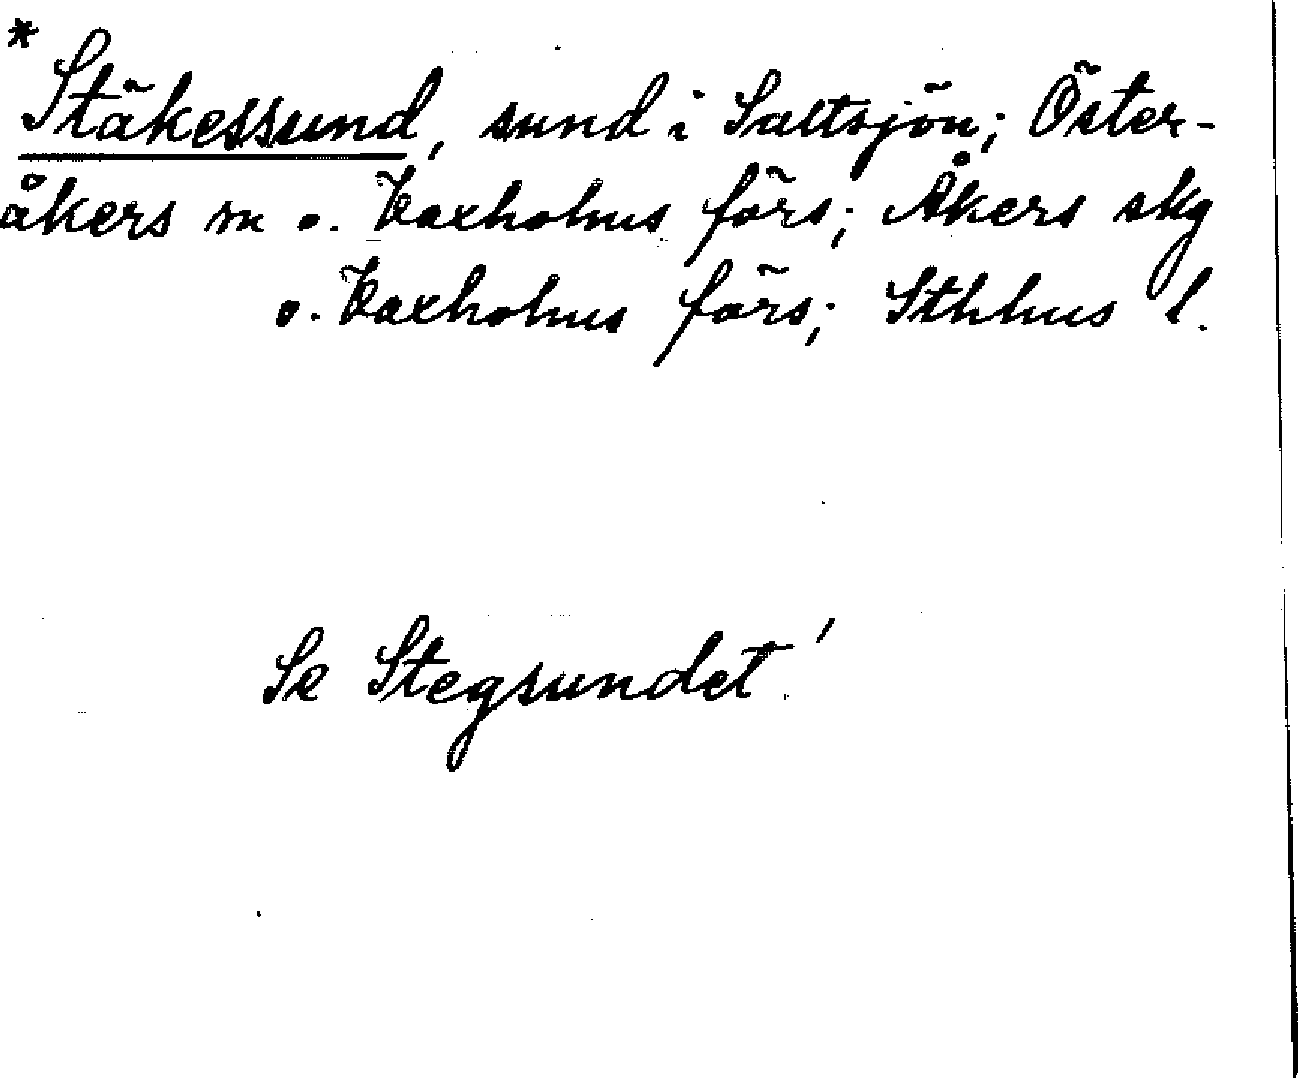 * Stäkessund, sund i Saltsjön; Öster-
åkers sn o. Vaxholms förs; Åkers skg
o. Vaxholms förs; Sthlms l.
Se Stegsundet!